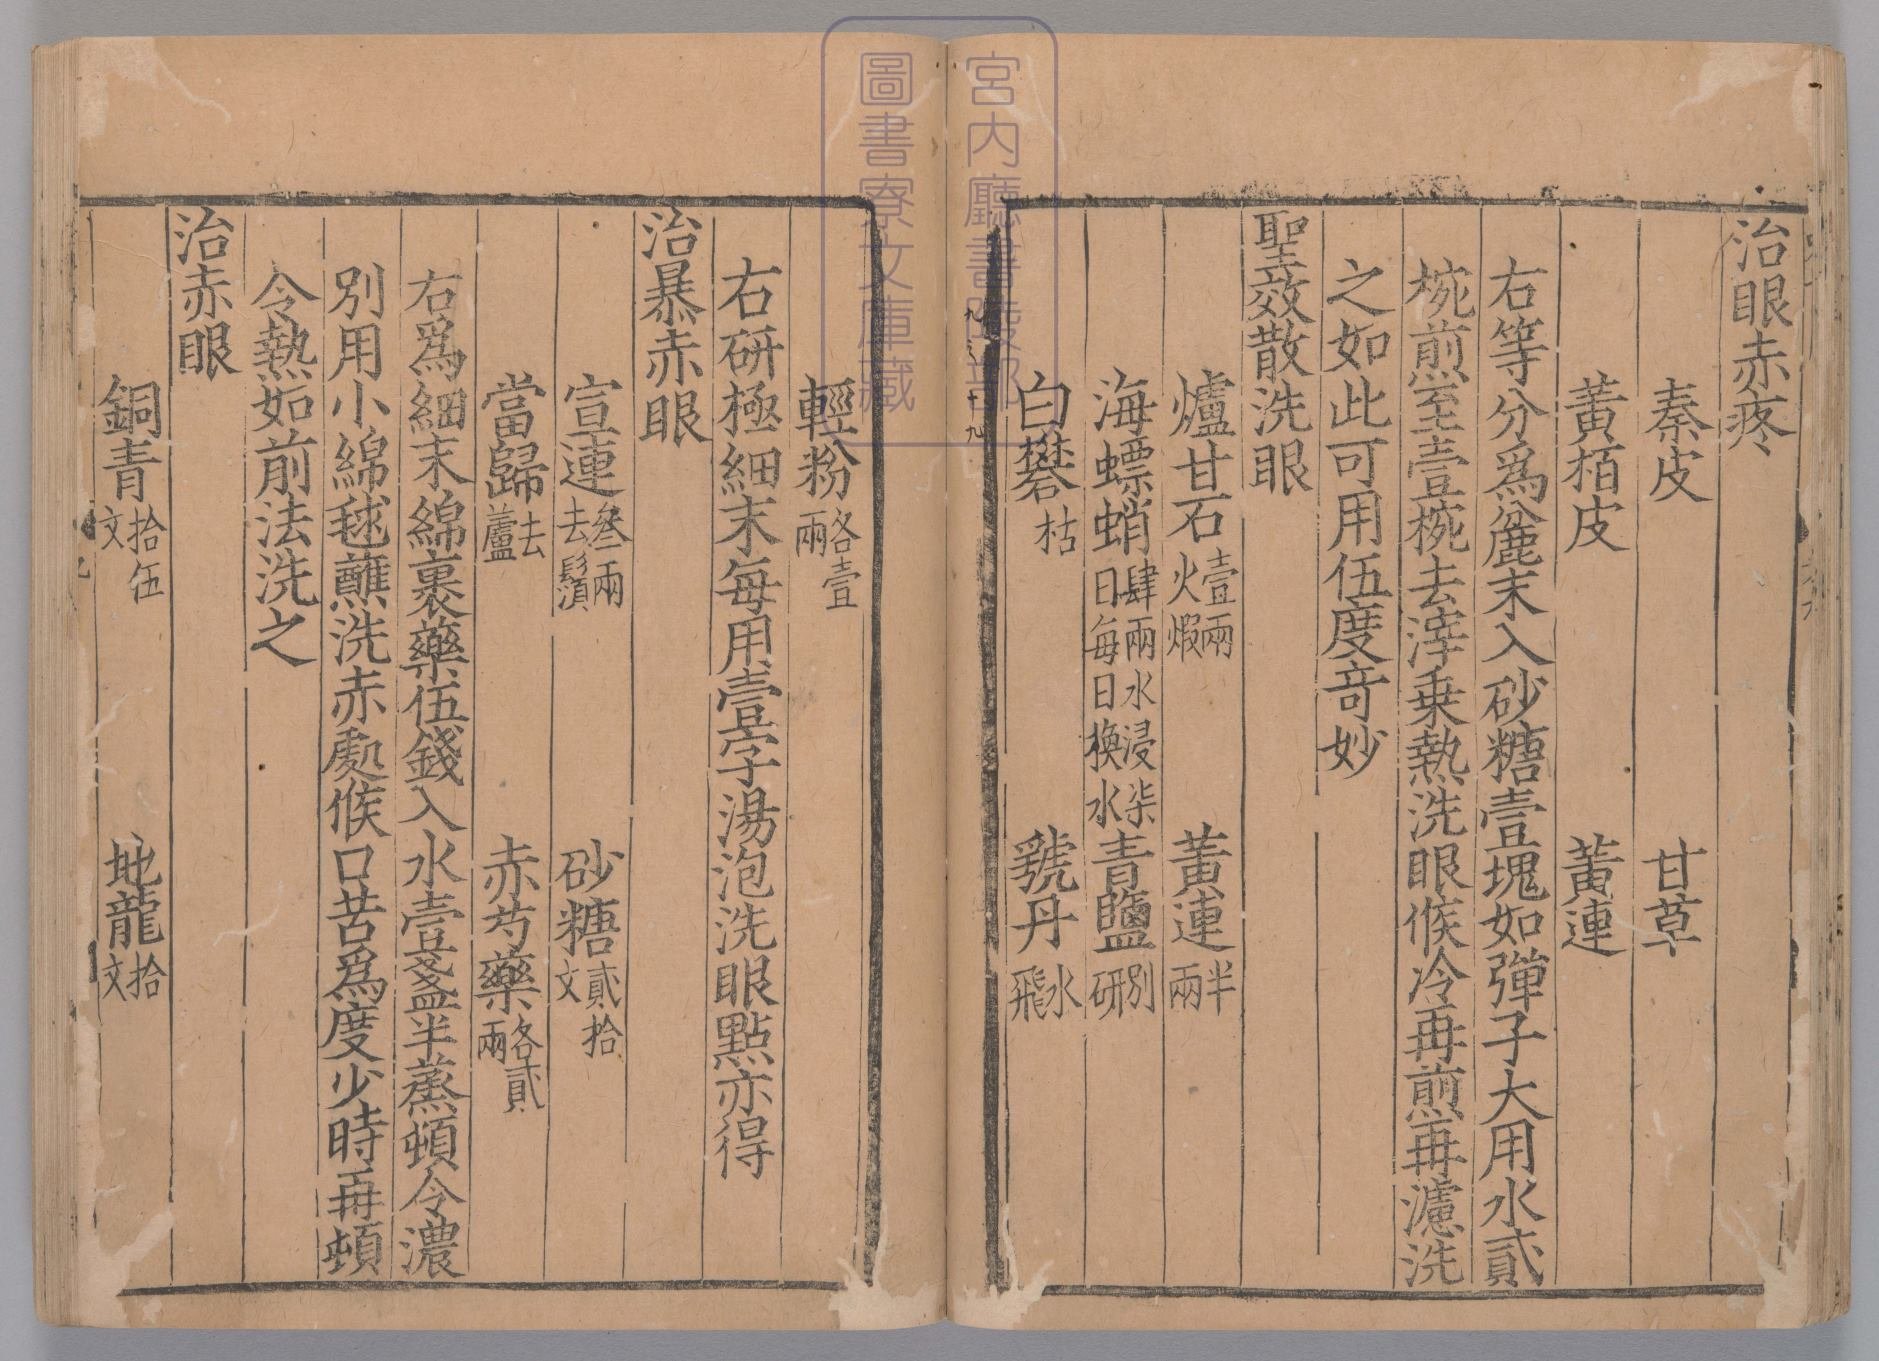 治眼赤疼
秦皮 甘草
黃栢皮 黃連
右等分爲麄末入砂糖壹塊如彈子大用水貳
椀煎至壹椀去滓乗熱洗眼候冷再煎再濾洗
之如此可用伍度竒妙
聖效散洗眼
爐甘石壹兩火煆 黃連半兩
海螵蛸肆兩水浸柒日每日換水 青鹽別研
白礬枯 虢丹水飛
輕粉各壹兩
右研極細末每用壹字湯泡洗眼點亦得
治暴赤眼
宣連叁兩去鬚 砂糖貳拾文
當歸去蘆 赤芍藥各貳兩
右爲細末綿裹藥伍錢入水壹盞半蒸頓令濃
別用小綿毬蘸洗赤處候口苦爲度少時再頓
令熱如前法洗之
治赤眼
銅青拾伍文 地龍拾文
宮內廳書陵部
圖書寮文庫藏